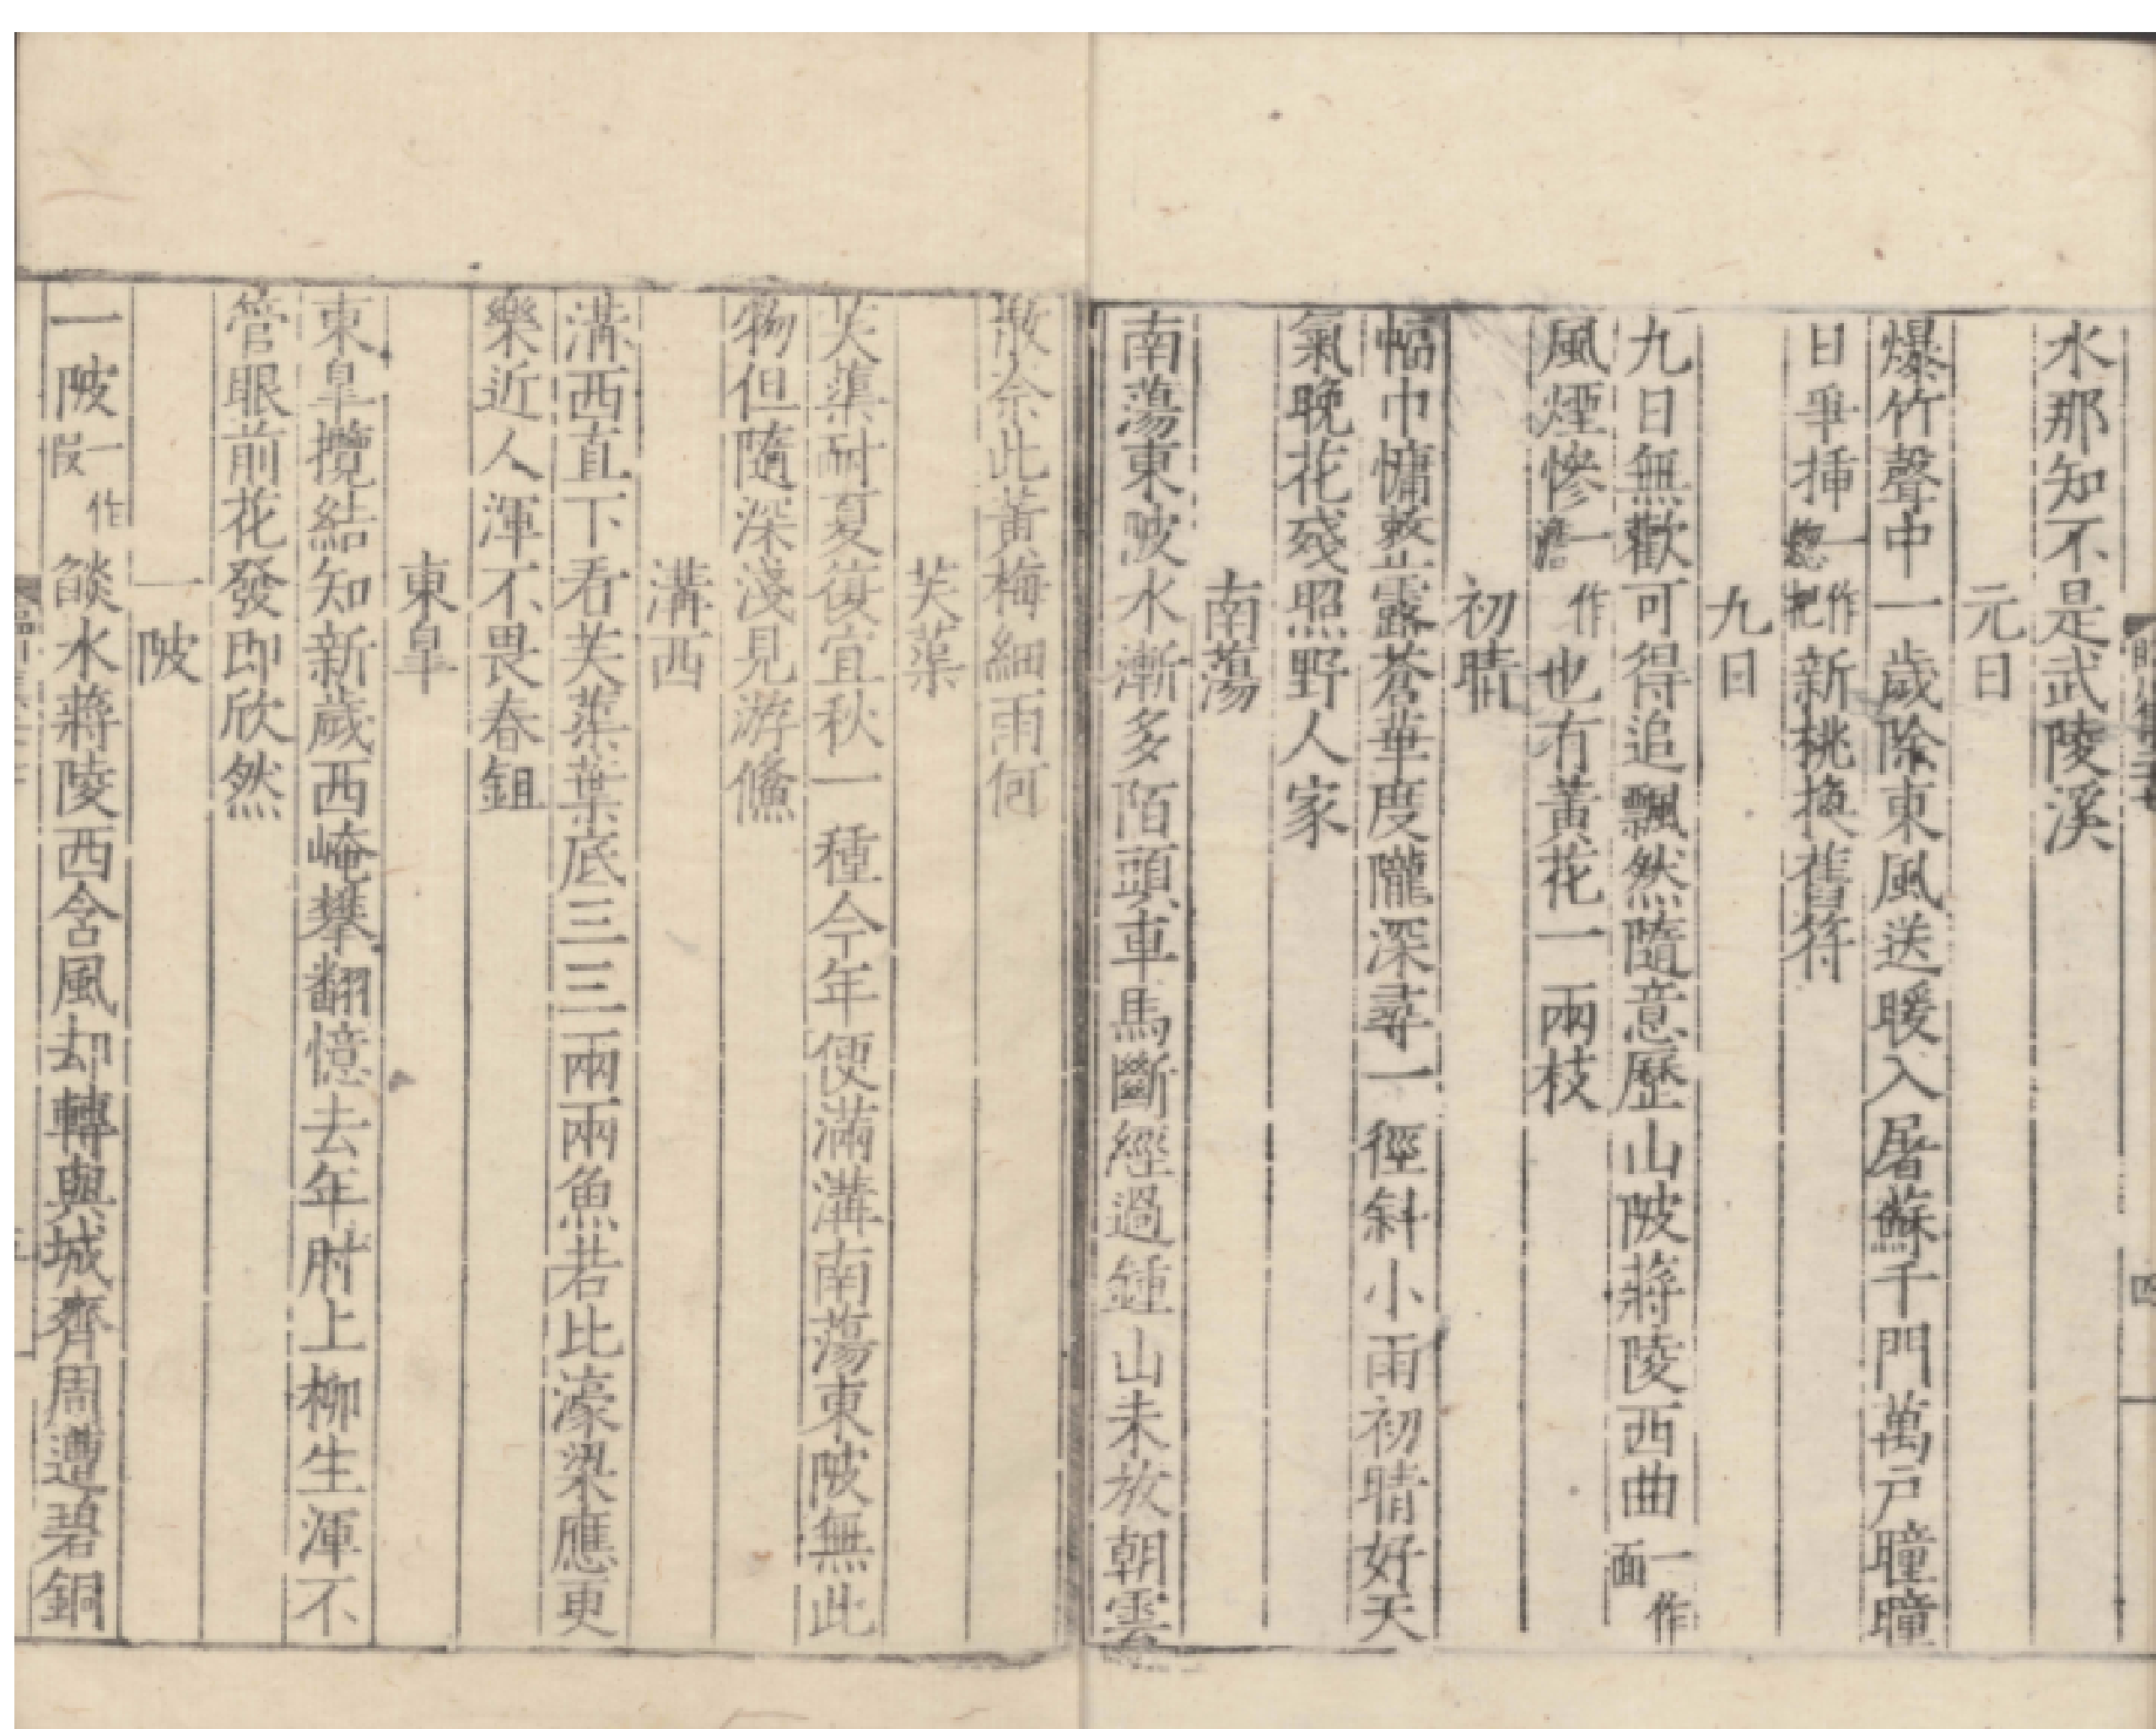 水那知不是武陵溪
元日
爆竹聲中一歲除東風送暖入屠蘇千門萬戸曈曈
日爭揷一作揔把新桃換舊符
九日
九日無歡可得追飄然隨意歷山陂蔣陵西曲一作面
風煙慘一作澹也有黃花一兩枝
初晴
幅巾慵整露蒼華度隴深尋一徑斜小雨初晴好天
氣晚花殘照野人家
南蕩
南蕩東陂水漸多陌頭車馬斷經過鍾山未放朝雲
散奈此黃梅細雨何
芙蕖
芙蕖耐夏復宜秋一種今年便滿溝南蕩東陂無此
物但隨深淺見游鯈
溝西
溝西直下看芙蕖葉底三三兩兩魚若比濠梁應更
樂近人渾不畏春鉏
東皐
東皐攬結知新歲西崦攀翻憶去年肘上柳生渾不
管眼前花發即欣然
一陂
一陂一作段餤水蔣陵西含風却轉與城齊周遭碧銅